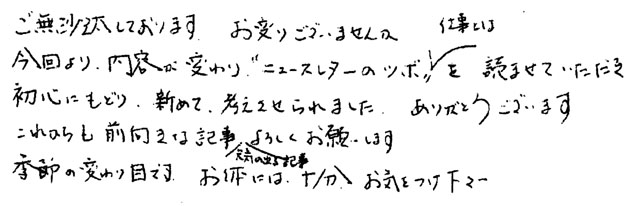 ご無沙汰しております. お変りございませんか
仕事とは
今回より、内容が変わり、"ニュースレターのツボ"を 読ませていただき
初心にもどり、新めて、考えさせられました. ありがとうございます
これからも 前向きな記事 よろしくお願いします
元気の出る記事
季節の変わり目です. お体には、十分、お気をつけ下さい